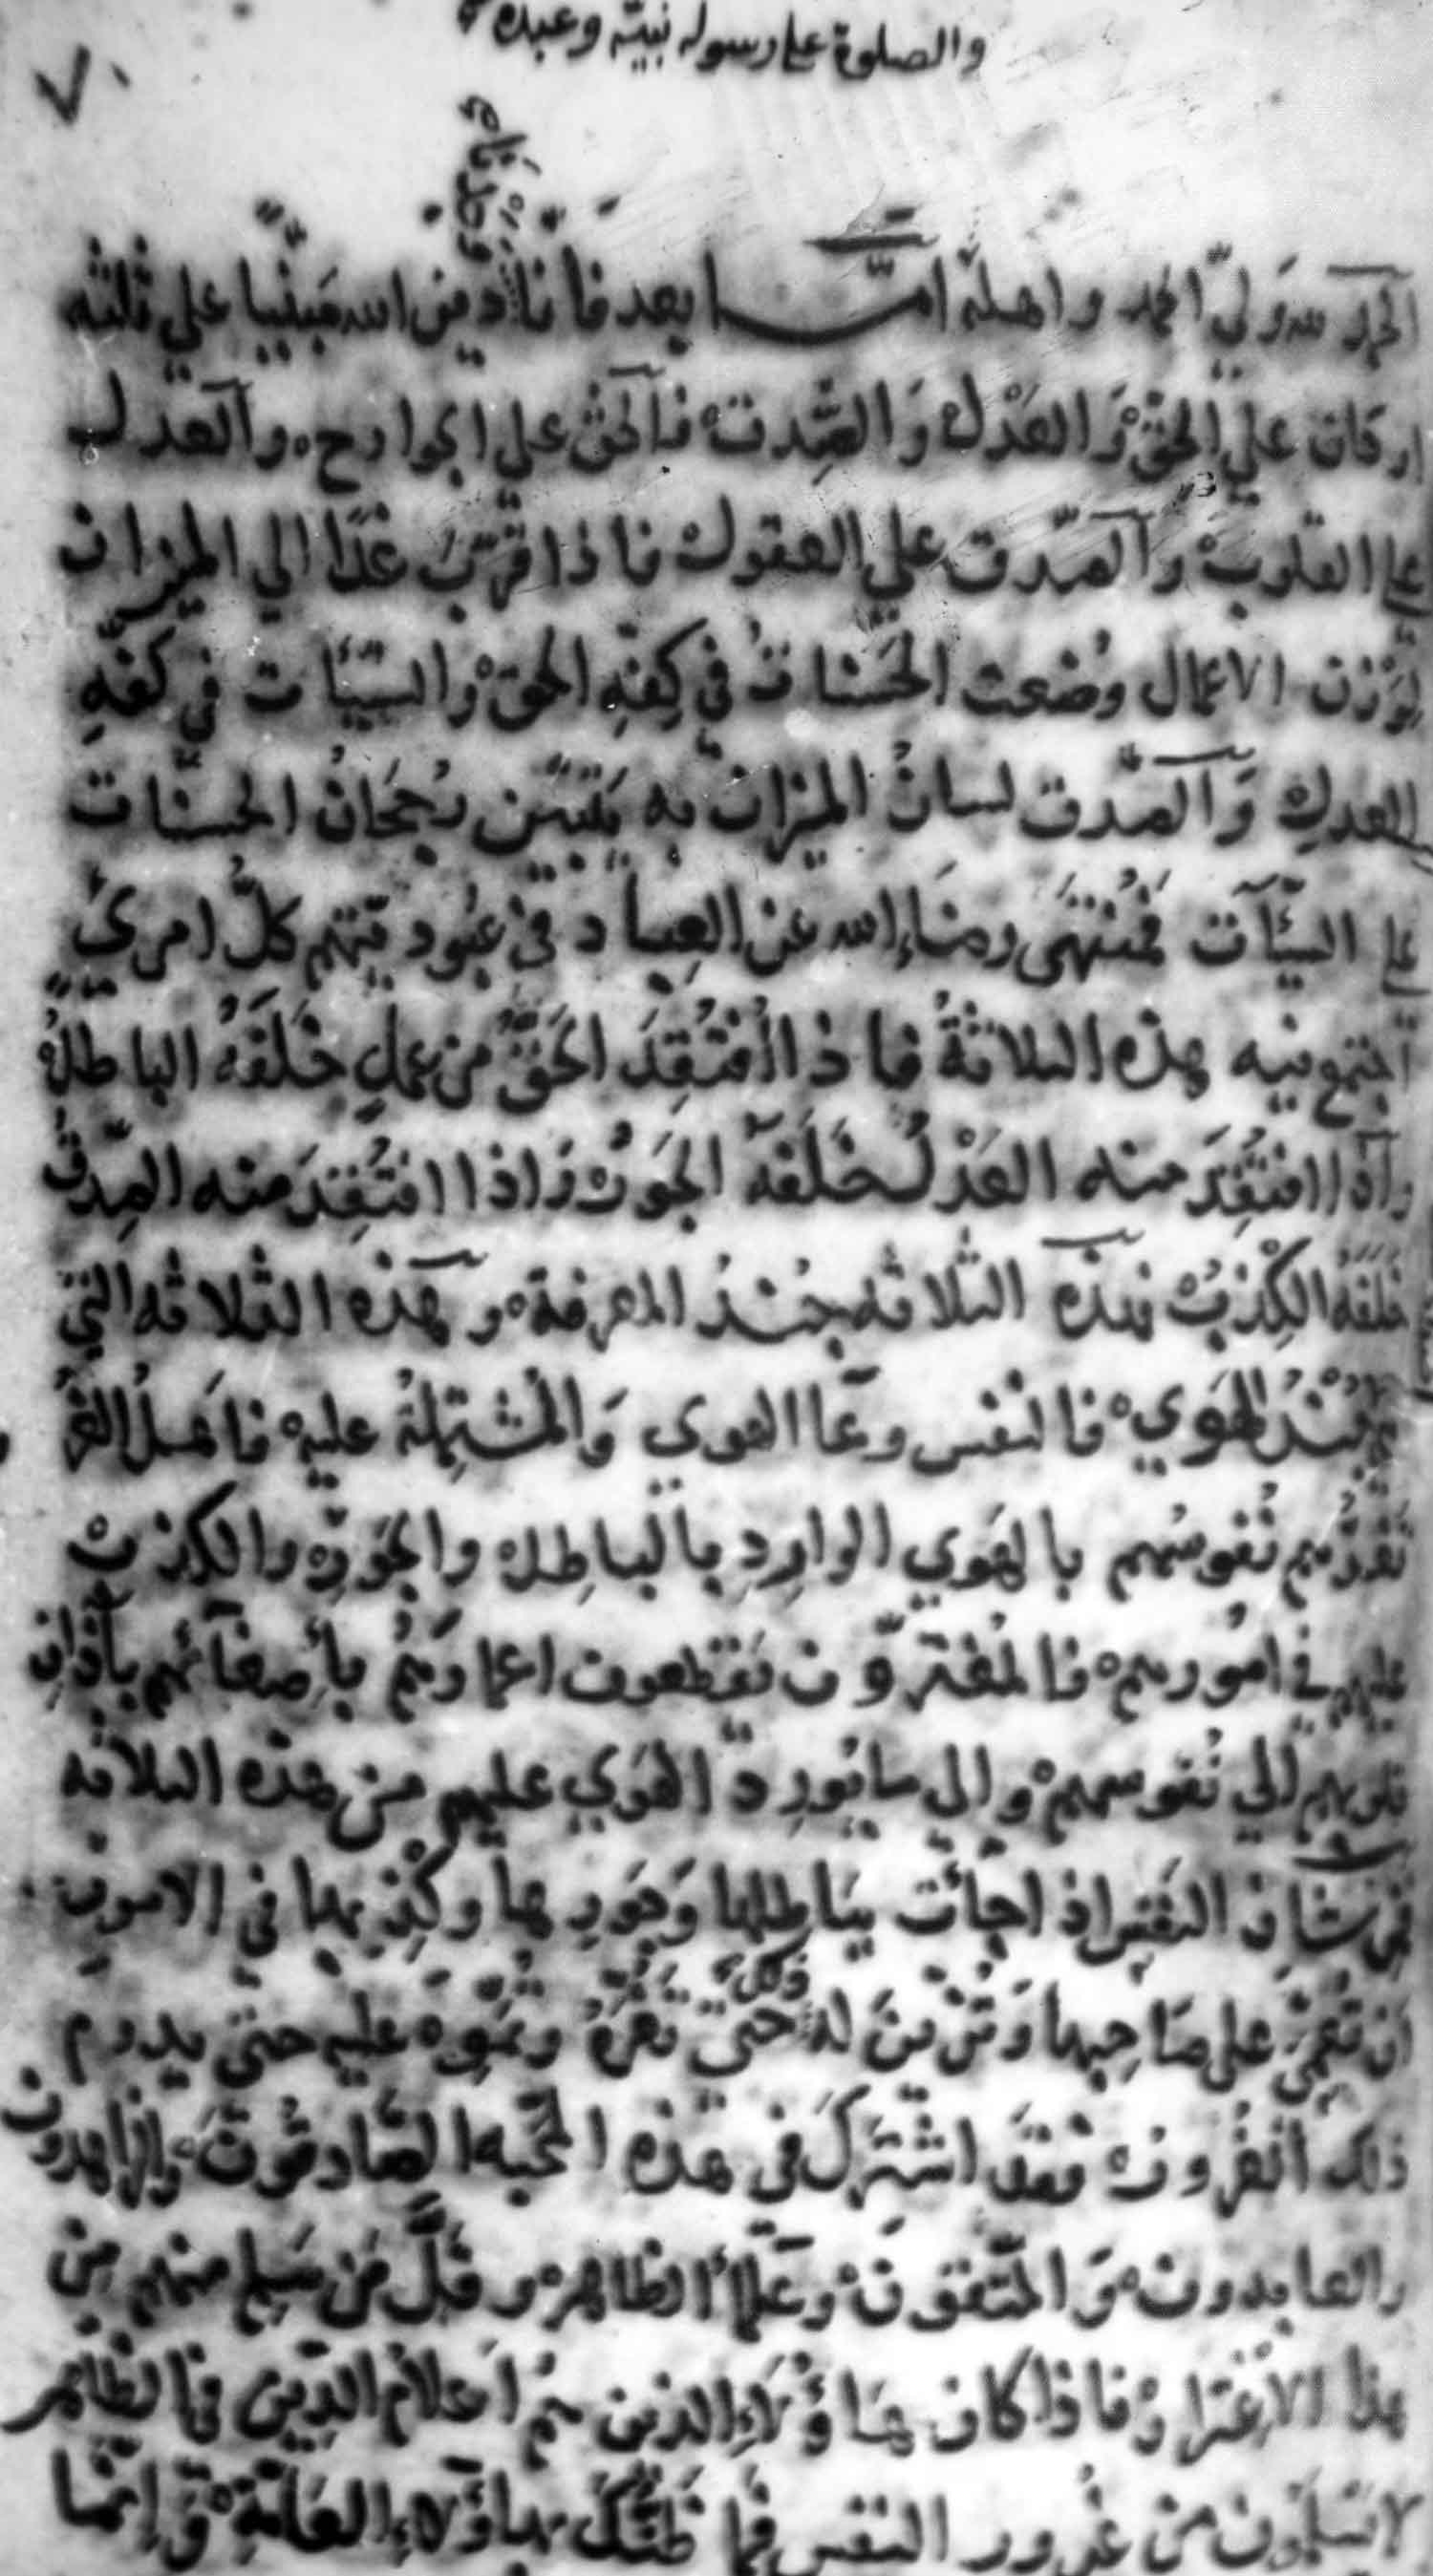 والصلوة على رسوله نبيه وعبده
٧٠
الحمد لله ولي الحمد واهله امّا بعد فانا دين الله مبنيا على ثلثه
وجدنا
اركان على الحق والعدل والصدق فالحق على الجوارح والعدل
على القلوب والصدق على العقول فاذا قرب غدا الى الميزان
لوزن الاعمال وضعت الحسنات في كفة الحق والسيئات في كفة
العدل والصدق لسان الميزان به يتبين رجحان الحسنات
على السيئات فمنتهى رضاء الله عن العباد في عبوديتهم كل امرئ
اجتمع فيه هذه الثلاثة فاذا افتقد الحق من عمل خلفه الباطل
واذا افتقد منه العدل خلفه الجور واذا افتقد منه الصدق
خلفه الكذب فهذه الثلاثه جند المعرفة وهذه الثلاثه التي
جند الهوى فالنفس وعا الهوى والمشتملة عليه فاهل الغر
تغرهم نفوسهم بالهوى الوارد بالباطل والجور والكذب
عليهم في امورهم فالمغترون يقطعون اعمارهم بأصغائهم بآذان
قلوبهم الى نفوسهم والى ما يورد الهوى عليهم من هذه الثلاثه
فمن شان النفس اذا جأت بباطلها وجورها وكذبها في الامور
ان تعمى على صاحبها وتزين له ذلك حتى تغره وتموه عليه حتى يدوم
ذلك الغرور فقد اشترك في هذه المحنه الصادقون والزاهدون
والعابدون والمتقون وعلمأ الظاهر وقل من سلم منهم من
هذا الاغترار فاذا كان هاؤلاء الذين هم اعلام الدين في الظاهر
لا يسلمون من غرور النفس فما ظنك بهاؤلاء العامة وانما